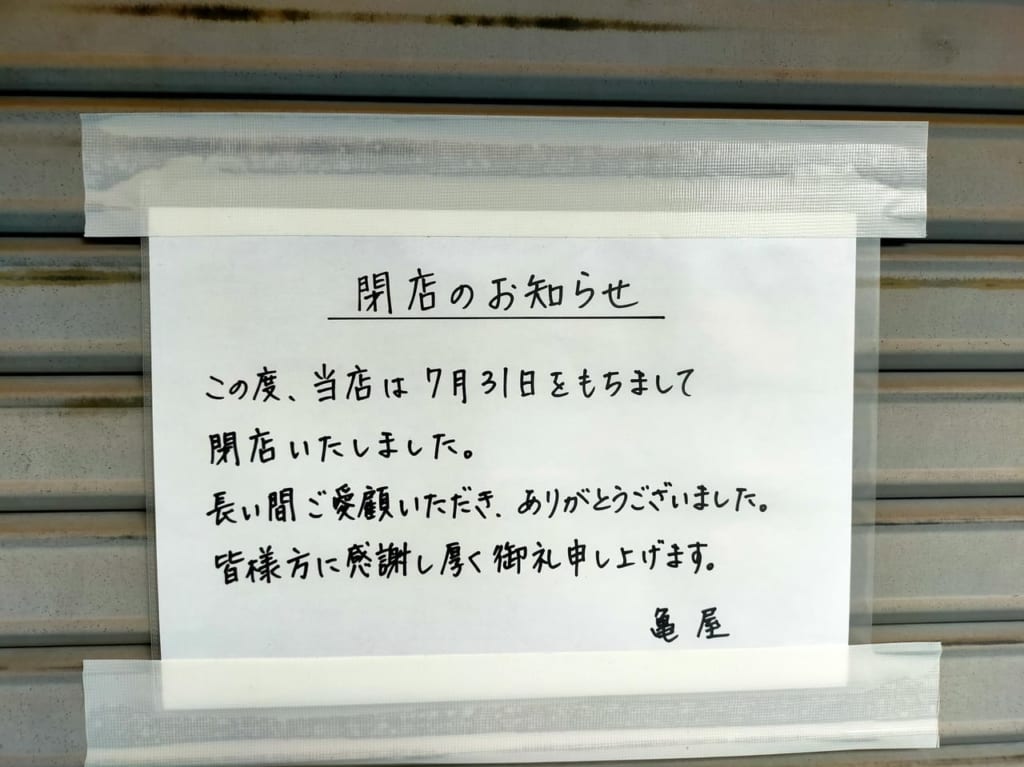 閉店のお知らせ
この度、当店は7月31日をもちまして
閉店いたしました。
長い間ご愛顧いただき、ありがとうございました。
皆様方に感謝し厚く御礼申し上げます。
亀屋